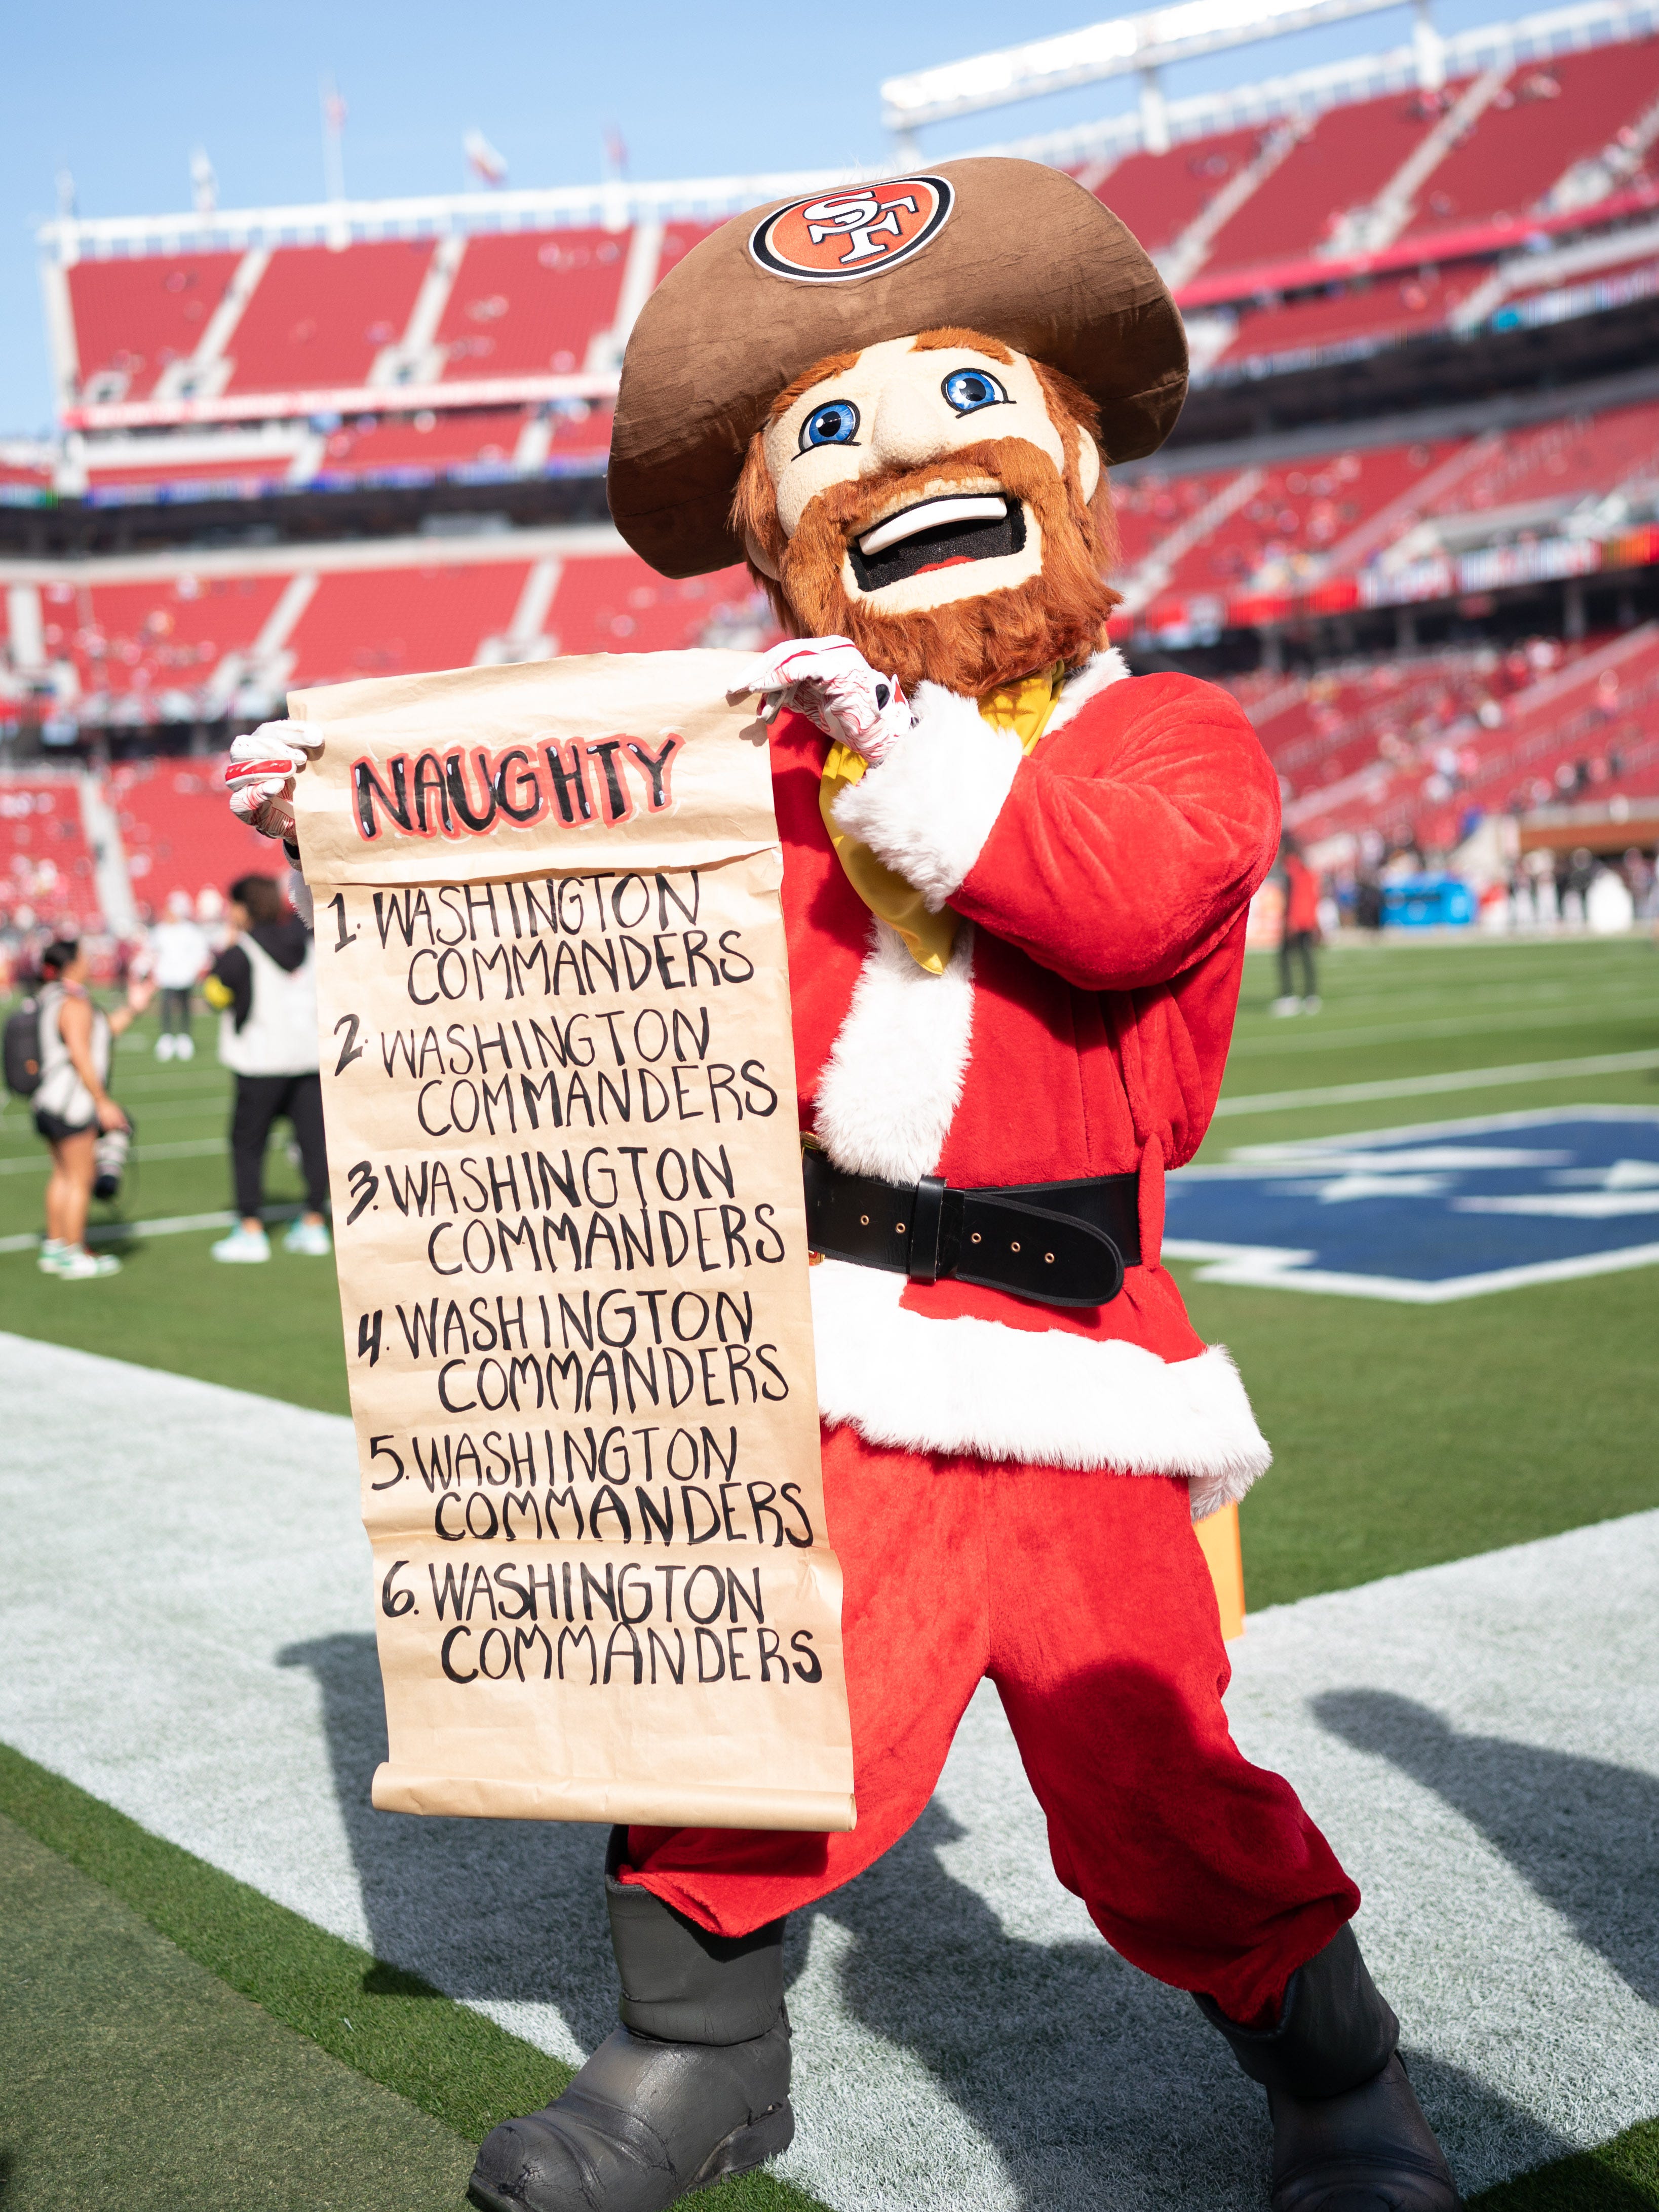 SF
NAUGHTY
1. WASHINGTON
COMMANDERS
2. WASHINGTON
COMMANDERS
3. WASHINGTON
COMMANDERS
4. WASHINGTON
COMMANDERS
5. WASHINGTON
COMMANDERS
6. WASHINGTON
COMMANDERS